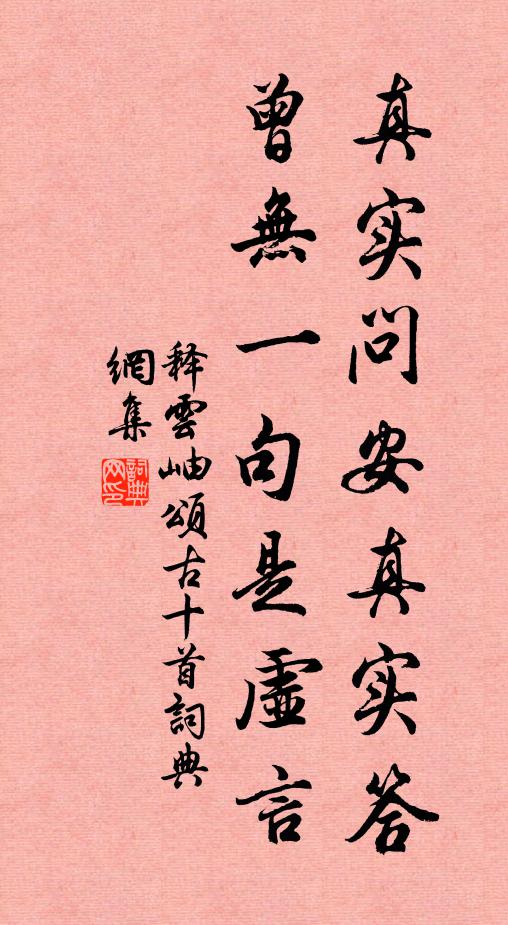 真实问安真实答
曾無一句是虛言
释雲岫頌古十首詞典
網集
詞典网印